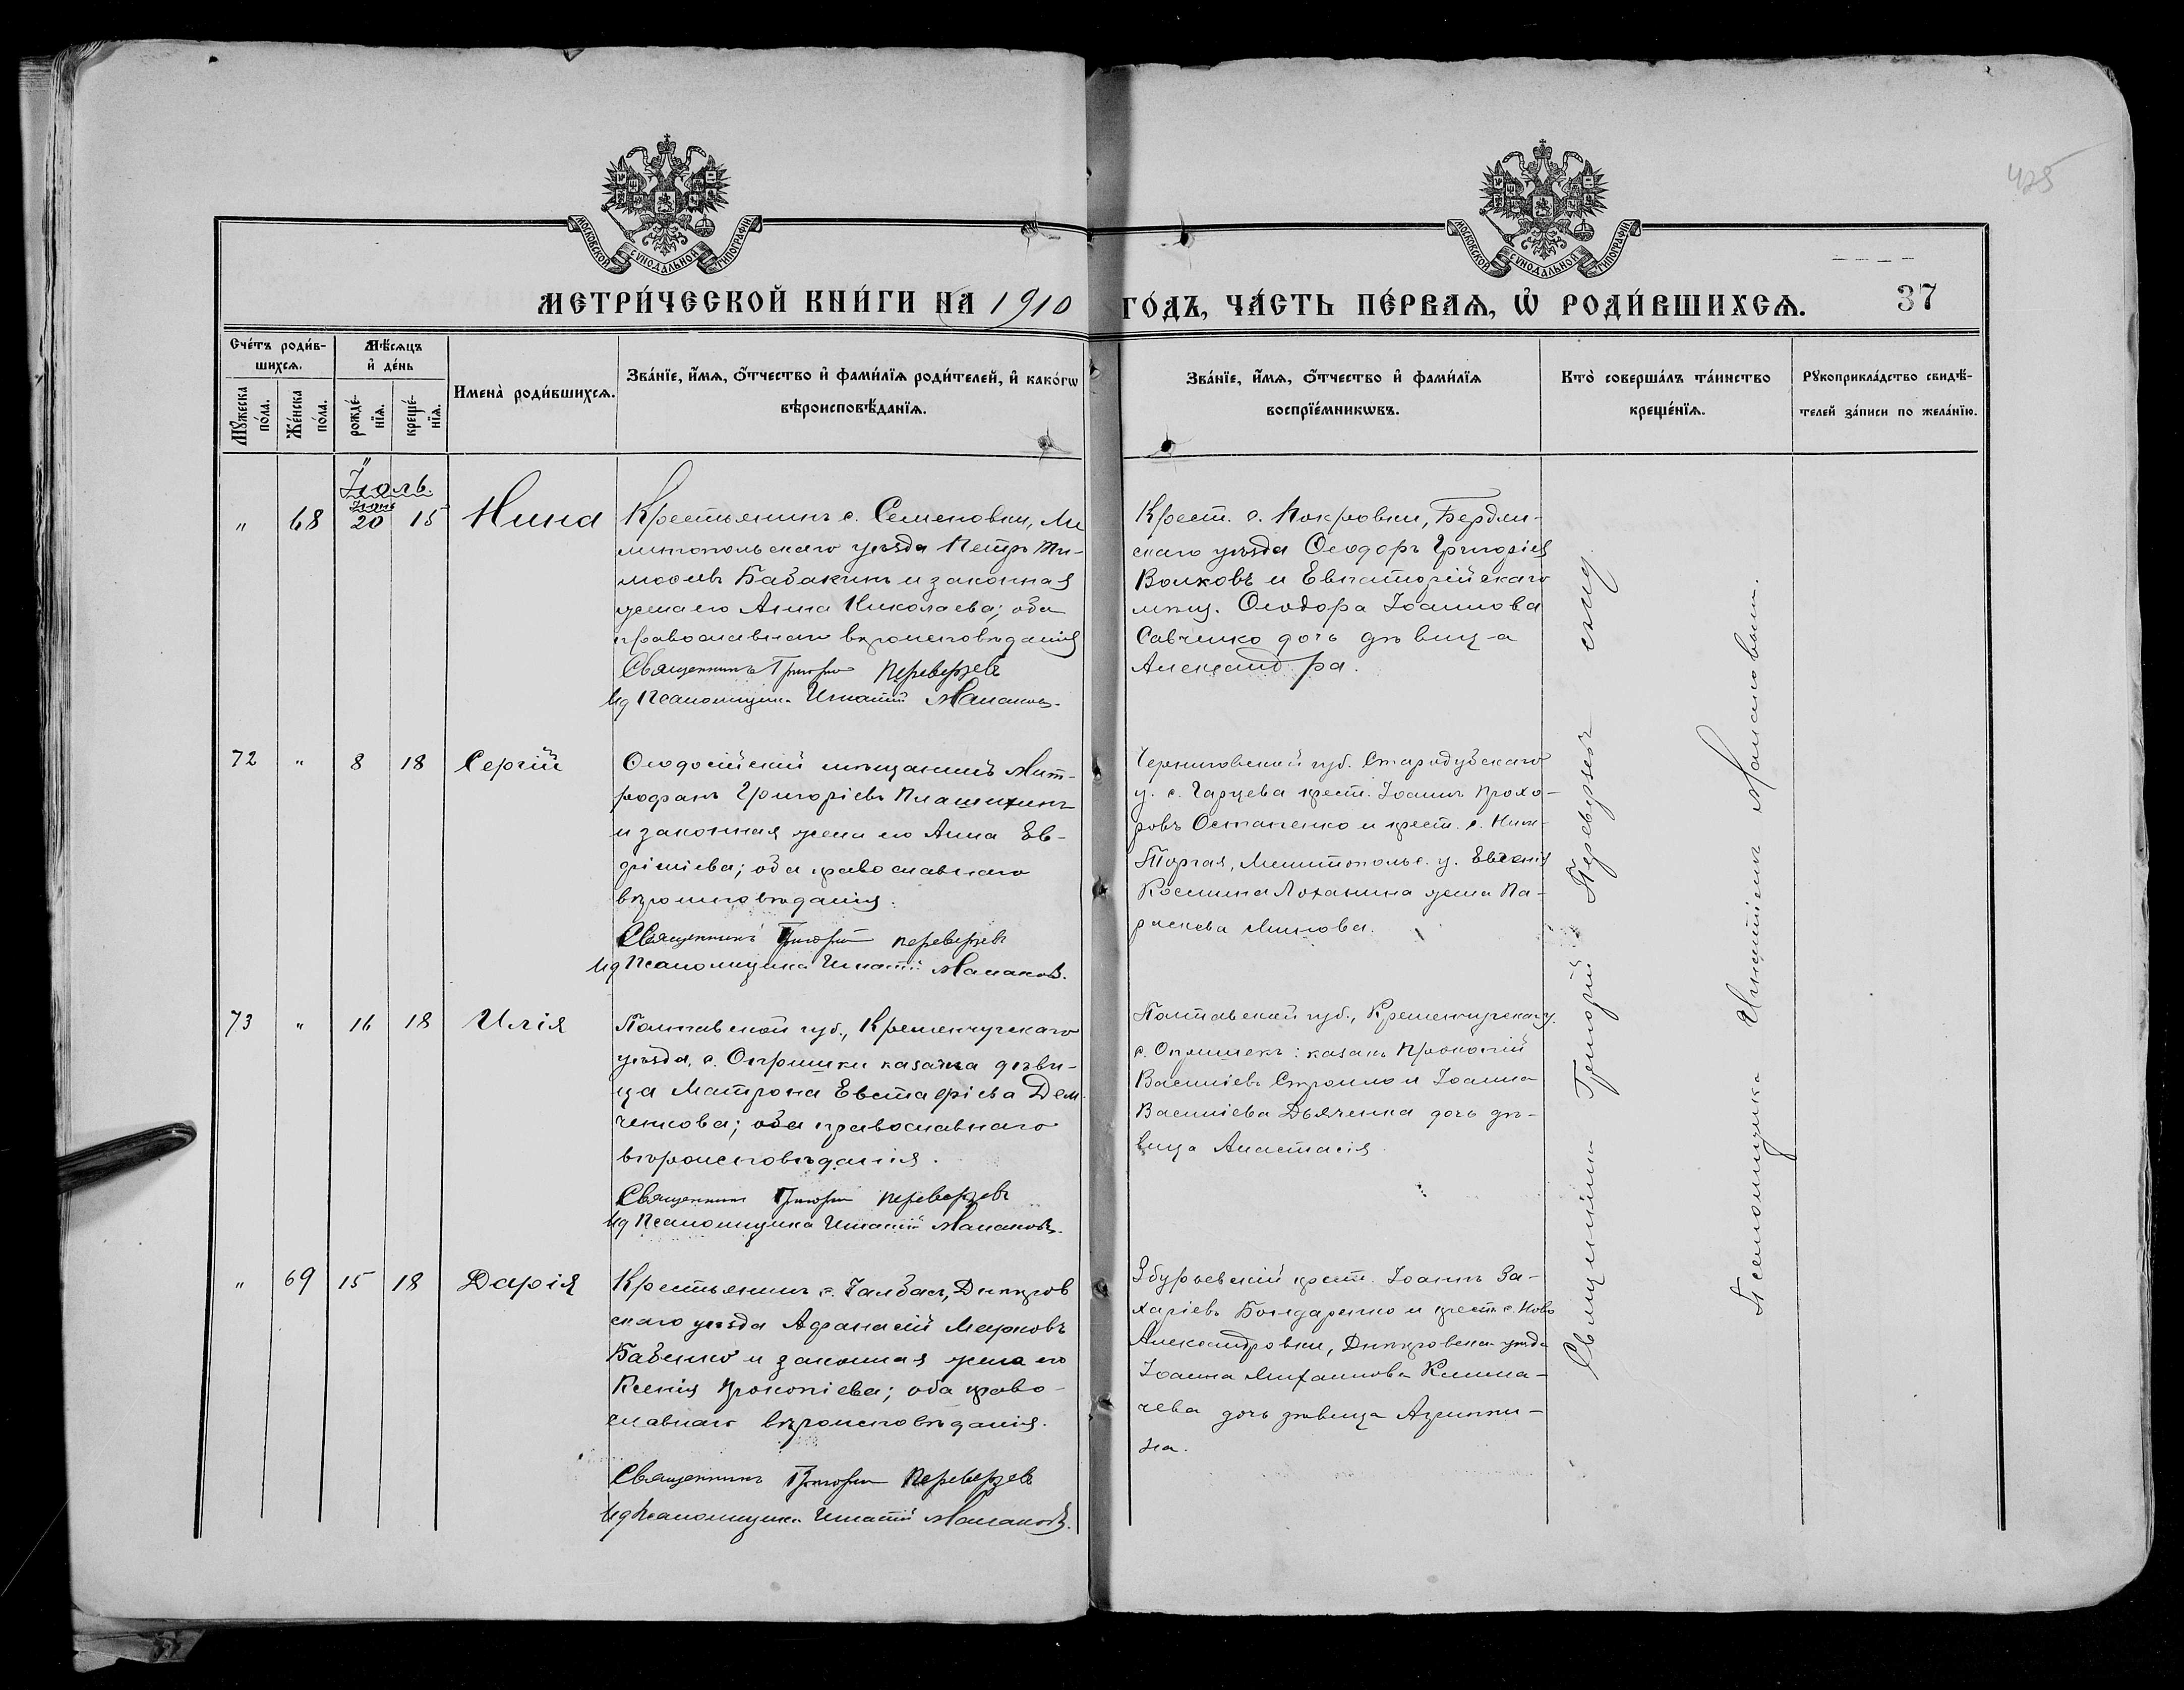 425
МОСКОВСКОЙ СУНОДАЛЬНОЙ ТИПОГРАФІИ
МОСКОВСКОЙ СУНОДАЛЬНОЙ ТИПОГРАФІИ
МЕТРИ́ЧЕСКОЙ КНИ́ГИ НА 1910 ГО́ДЪ, ЧА́СТЬ ПЕ́РВАѦ, Ѡ҆ РОДИ́ВШИХСѦ. 37
Сче́тъ роди́в-
шихсѧ.
Мꙋ́жеска
по́ла.
Же́нска
по́ла.
Мѣ́сѧцъ
и҆ де́нь
рожде́-
нїѧ.
креще́-
нїѧ.
Имена̀ роди́вшихсѧ.
Зва́нїе, и҆́мѧ, ѻ҆́тчество и҆ фами́лїѧ роди́телей, и҆ како́гѡ
вѣроисповѣ́данїѧ.
Зва́нїе, и҆́мѧ, ѻ҆́тчество и҆ фами́лїѧ
воспрїе́мникѡвъ.
Кто̀ соверша́лъ та́инство
креще́нїѧ.
Рꙋкоприкла́дство свидѣ́-
телей за́писи по жела́нїю.
Іюль.
Іюня
" 68 20 15 Нина
Крестьянинъ с. Семеновки, Ме
литопольскаго уѣзда Петръ Ти-
моѳеевъ Бабакинъ и законная
жена его Анна Николаева; оба
православнаго вѣроисповѣданія
Священникъ Григорій Переверзевъ
И д Псаломщика Игнатій Малаховъ.
Крест. с. Покровки, Бердян-
скаго уѣзда Ѳеодоръ Григоріев
Волковъ и Евпаторійскаго
мѣщ. Ѳеодора Іоаннова
Савченко дочь дѣвица
Александра.
72 " 8 18 Сергій
Ѳеодосійскій мѣщанинъ Мит-
рофанъ Григоріевъ
и законная жена его Анна Ев-
фиміева; оба православнаго
вѣроисповѣданія.
Священникъ Григорій Переверзевъ
И д Псаломщика Игнатій Малаховъ.
Черниговской губ. Стародубскаго
у. с. Гарцева крест. Іоаннъ Прохо-
ровъ Остапенко и крест. с. Ниж-
Торгая, Мелитопольс. у. Евгенія
Космина Лоханина жена Па-
раскева
73 " 16 18 Илія
Полтавской губ., Кременчугскаго
уѣзда, с. Опришки казачка дѣви-
ца Матрона Евстафіева Дем-
ченкова; оба православнаго
вѣроисповѣданія.
Священникъ Григорій Переверзевъ
И д Псаломщика Игнатій Малаховъ.
Полтавской губ., Кременчугскаг. у.
с. Опришекъ: казакъ Прокопій
Василіевъ и Іоанна
Василіева Дьяченка дочь дѣ-
вица Анастасія.
" 69 15 18 Дарія
Крестьянинъ с. Днѣпров
скаго уѣзда Афанасій Марковъ
Бабенко и законная жена его
Ксенія Прокопіева; оба право-
славнаго вѣроисповѣданія.
Священникъ Григорій Переверзевъ
И д Псаломщика Игнатій Малаховъ.
Збурьевскій крест. Іоаннъ За-
харіевъ Бондаренко и крест. с. Ново
Александровки, Днѣпровскаго уѣзда
Іоанна Михаилова
чева дочь дѣвица Агрипи-
на.
Священникъ Григорій Переверзевъ съ и. д.
Псаломщика Игнатіемъ Малаховымъ.